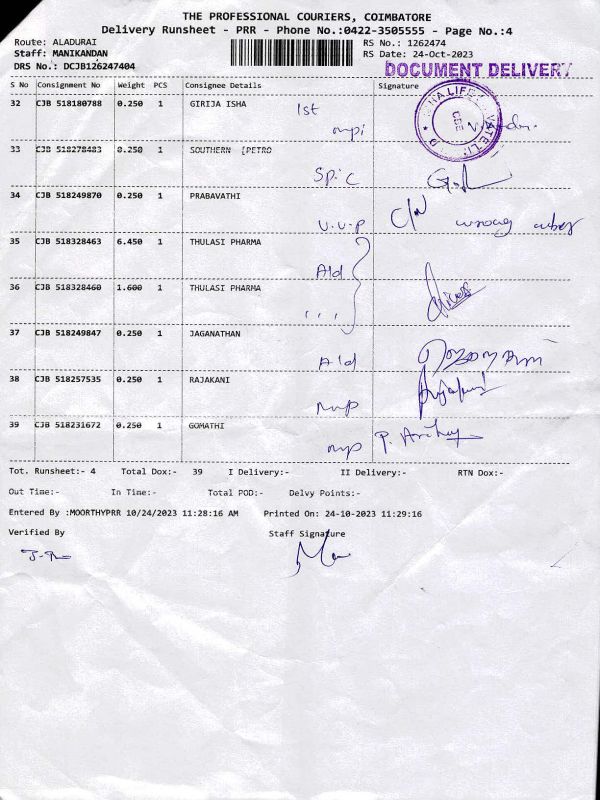 THE PROFESSIONAL COURIERS, COIMBATORE
Delivery Runsheet - PRR - Phone No.:0422-3505555 - Page No.:4
Route: ALADURAI RS No.: 1262474
Staff: MANIKANDAN RS Date: 24-Oct-2023
DRS No.: DCJB126247404 DOCUMENT DELIVERY
S No Consignment No Weight PCS Consignee Details Signature
32 CJB 518180788 0.250 1 GIRIJA ISHA 1st
mpi
33 CJB 518278483 0.250 1 SOUTHERN [PETRO
Spic
34 CJB 518249870 0.250 1 PRABAVATHI
U.U.P C/N wrong
35 CJB 518328463 6.450 1 THULASI PHARMA
Ald
36 CJB 518328460 1.600 1 THULASI PHARMA
37 CJB 518249847 0.250 1 JAGANATHAN
Ald
38 CJB 518257535 0.250 1 RAJAKANI
39 CJB 518231672 0.250 1 GOMATHI
Tot. Runsheet:- 4 Total Dox:- 39 I Delivery:- II Delivery:- RTN Dox:-
Out Time:- In Time:- Total POD:- Delvy Points:-
Entered By :MOORTHYPRR 10/24/2023 11:28:16 AM Printed On: 24-10-2023 11:29:16
Verified By Staff Signature